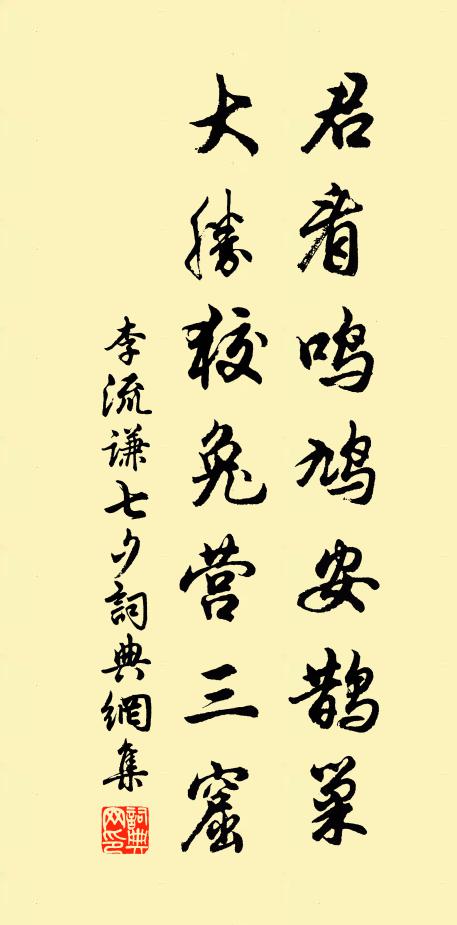 君看鸣鸠安鹊巢
大勝狡兔营三窟
李流谦七夕詞典網集
詞典網印